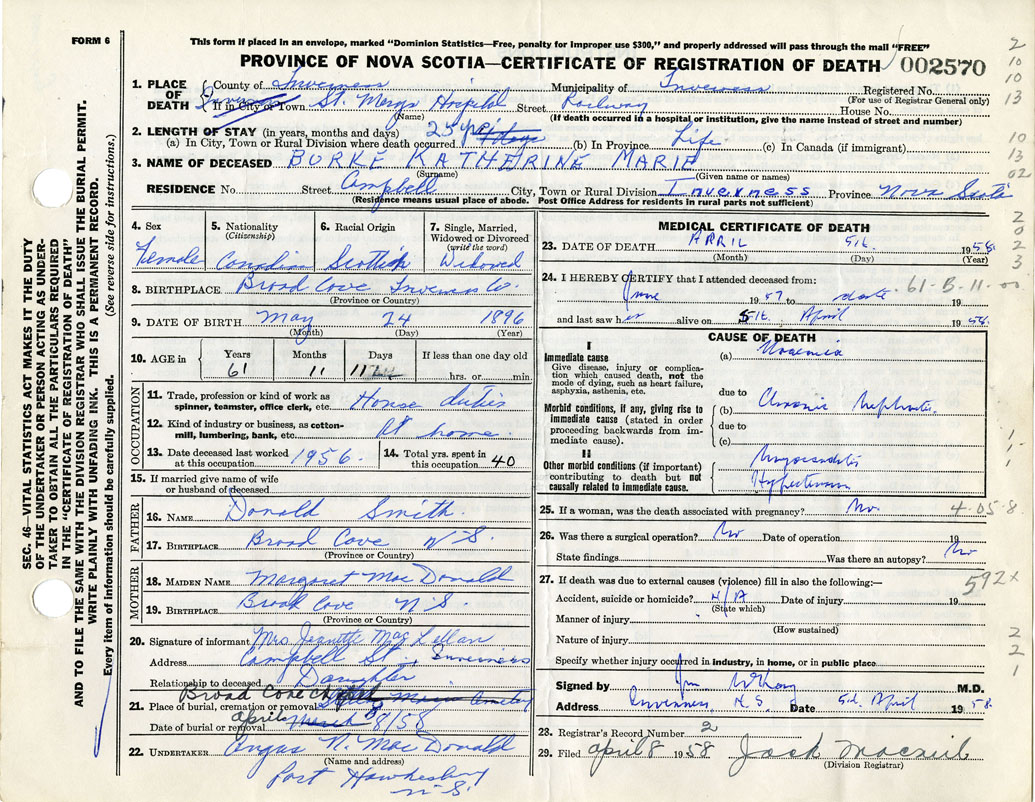 FORM 6
This form if placed in an envelope, marked "Dominion Statistics—Free, penalty for improper use $300," and properly addressed will pass through the mail "FREE"
PROVINCE OF NOVA SCOTIA—CERTIFICATE OF REGISTRATION OF DEATH 002570
SEC. 46—VITAL STATISTICS ACT MAKES IT THE DUTY
OF THE UNDERTAKER OR PERSON ACTING AS UNDER-
TAKER TO OBTAIN ALL THE PARTICULARS REQUIRED
IN THE "CERTIFICATE OF REGISTRATION OF DEATH"
AND TO FILE THE SAME WITH THE DIVISION REGISTRAR WHO SHALL ISSUE THE BURIAL PERMIT.
WRITE PLAINLY WITH UNFADING INK. THIS IS A PERMANENT RECORD.
Every item of information should be carefully supplied. (See reverse side for instructions.)
1. PLACE OF DEATH County of Inverness Municipality of Inverness Registered No.
(For use of Registrar General only)
If in City or Town St. Marys Hospital Street Railway House No.
(Name) (If death occurred in a hospital or institution, give the name instead of street and number)
2. LENGTH OF STAY (in years, months and days)
(a) In City, Town or Rural Division where death occurred 25 yrs (b) In Province Life (c) In Canada (if immigrant)
3. NAME OF DECEASED BURKE KATHERINE MARIE
(Surname) (Given name or names)
RESIDENCE No. Street Campbell City, Town or Rural Division Inverness Province Nova Scotia
(Residence means usual place of abode. Post Office Address for residents in rural parts not sufficient)
4. Sex Female
5. Nationality (Citizenship) Canadian
6. Racial Origin Scottish
7. Single, Married, Widowed or Divorced (write the word) Widowed
8. BIRTHPLACE Broad Cove Inverness Co.
(Province or Country)
9. DATE OF BIRTH May 24 1896
(Month) (Day) (Year)
10. AGE in Years 61 Months 11 Days 11 If less than one day old hrs. or min.
OCCUPATION
11. Trade, profession or kind of work as spinner, teamster, office clerk, etc. House duties
12. Kind of industry or business, as cotton-mill, lumbering, bank, etc. At home
13. Date deceased last worked at this occupation 1956
14. Total yrs. spent in this occupation 40
15. If married give name of wife or husband of deceased
FATHER
16. NAME Donald Smith
17. BIRTHPLACE Broad Cove N S.
(Province or Country)
MOTHER
18. MAIDEN NAME Margaret Mac Donald
19. BIRTHPLACE Broad Cove N S.
(Province or Country)
20. Signature of informant Mrs Jeanette Mac Lellan
Address Campbell St., Inverness
Relationship to deceased Daughter
Broad Cove Chapel
21. Place of burial, cremation or removal
Date of burial or removal April 8/58
22. UNDERTAKER Angus N. Mac Donald
(Name and address)
Port Hawkesbury
N. S.
MEDICAL CERTIFICATE OF DEATH
23. DATE OF DEATH APRIL 5th 1958
(Month) (Day) (Year)
24. I HEREBY CERTIFY that I attended deceased from:
June 1957 to date 19
61-B-11-00
and last saw her alive on 5th April 1958
CAUSE OF DEATH
I
Immediate cause
Give disease, injury or complication which caused death, not the mode of dying, such as heart failure, asphyxia, asthenia, etc.
(a) Uraemia
due to
Morbid conditions, if any, giving rise to immediate cause (stated in order proceeding backwards from immediate cause).
(b) Chronic Nephritis
due to
(c)
II
Other morbid conditions (if important) contributing to death but not causally related to immediate cause.
Myocarditis
Hypertension
25. If a woman, was the death associated with pregnancy? No. 4-05-8
26. Was there a surgical operation? No Date of operation 19
State findings Was there an autopsy? No
27. If death was due to external causes (violence) fill in also the following:— 592x
Accident, suicide or homicide? N/A Date of injury 19
(State which)
Manner of injury
(How sustained)
Nature of injury
Specify whether injury occurred in industry, in home, or in public place
Signed by M.D.
Address Inverness N.S. Date 5th April 1958
28. Registrar's Record Number 2
29. Filed April 8 1958 Jack MacNeil
(Division Registrar)
2
10
10
13
10
13
02
2
0
2
3
1
1
1
2
2
1